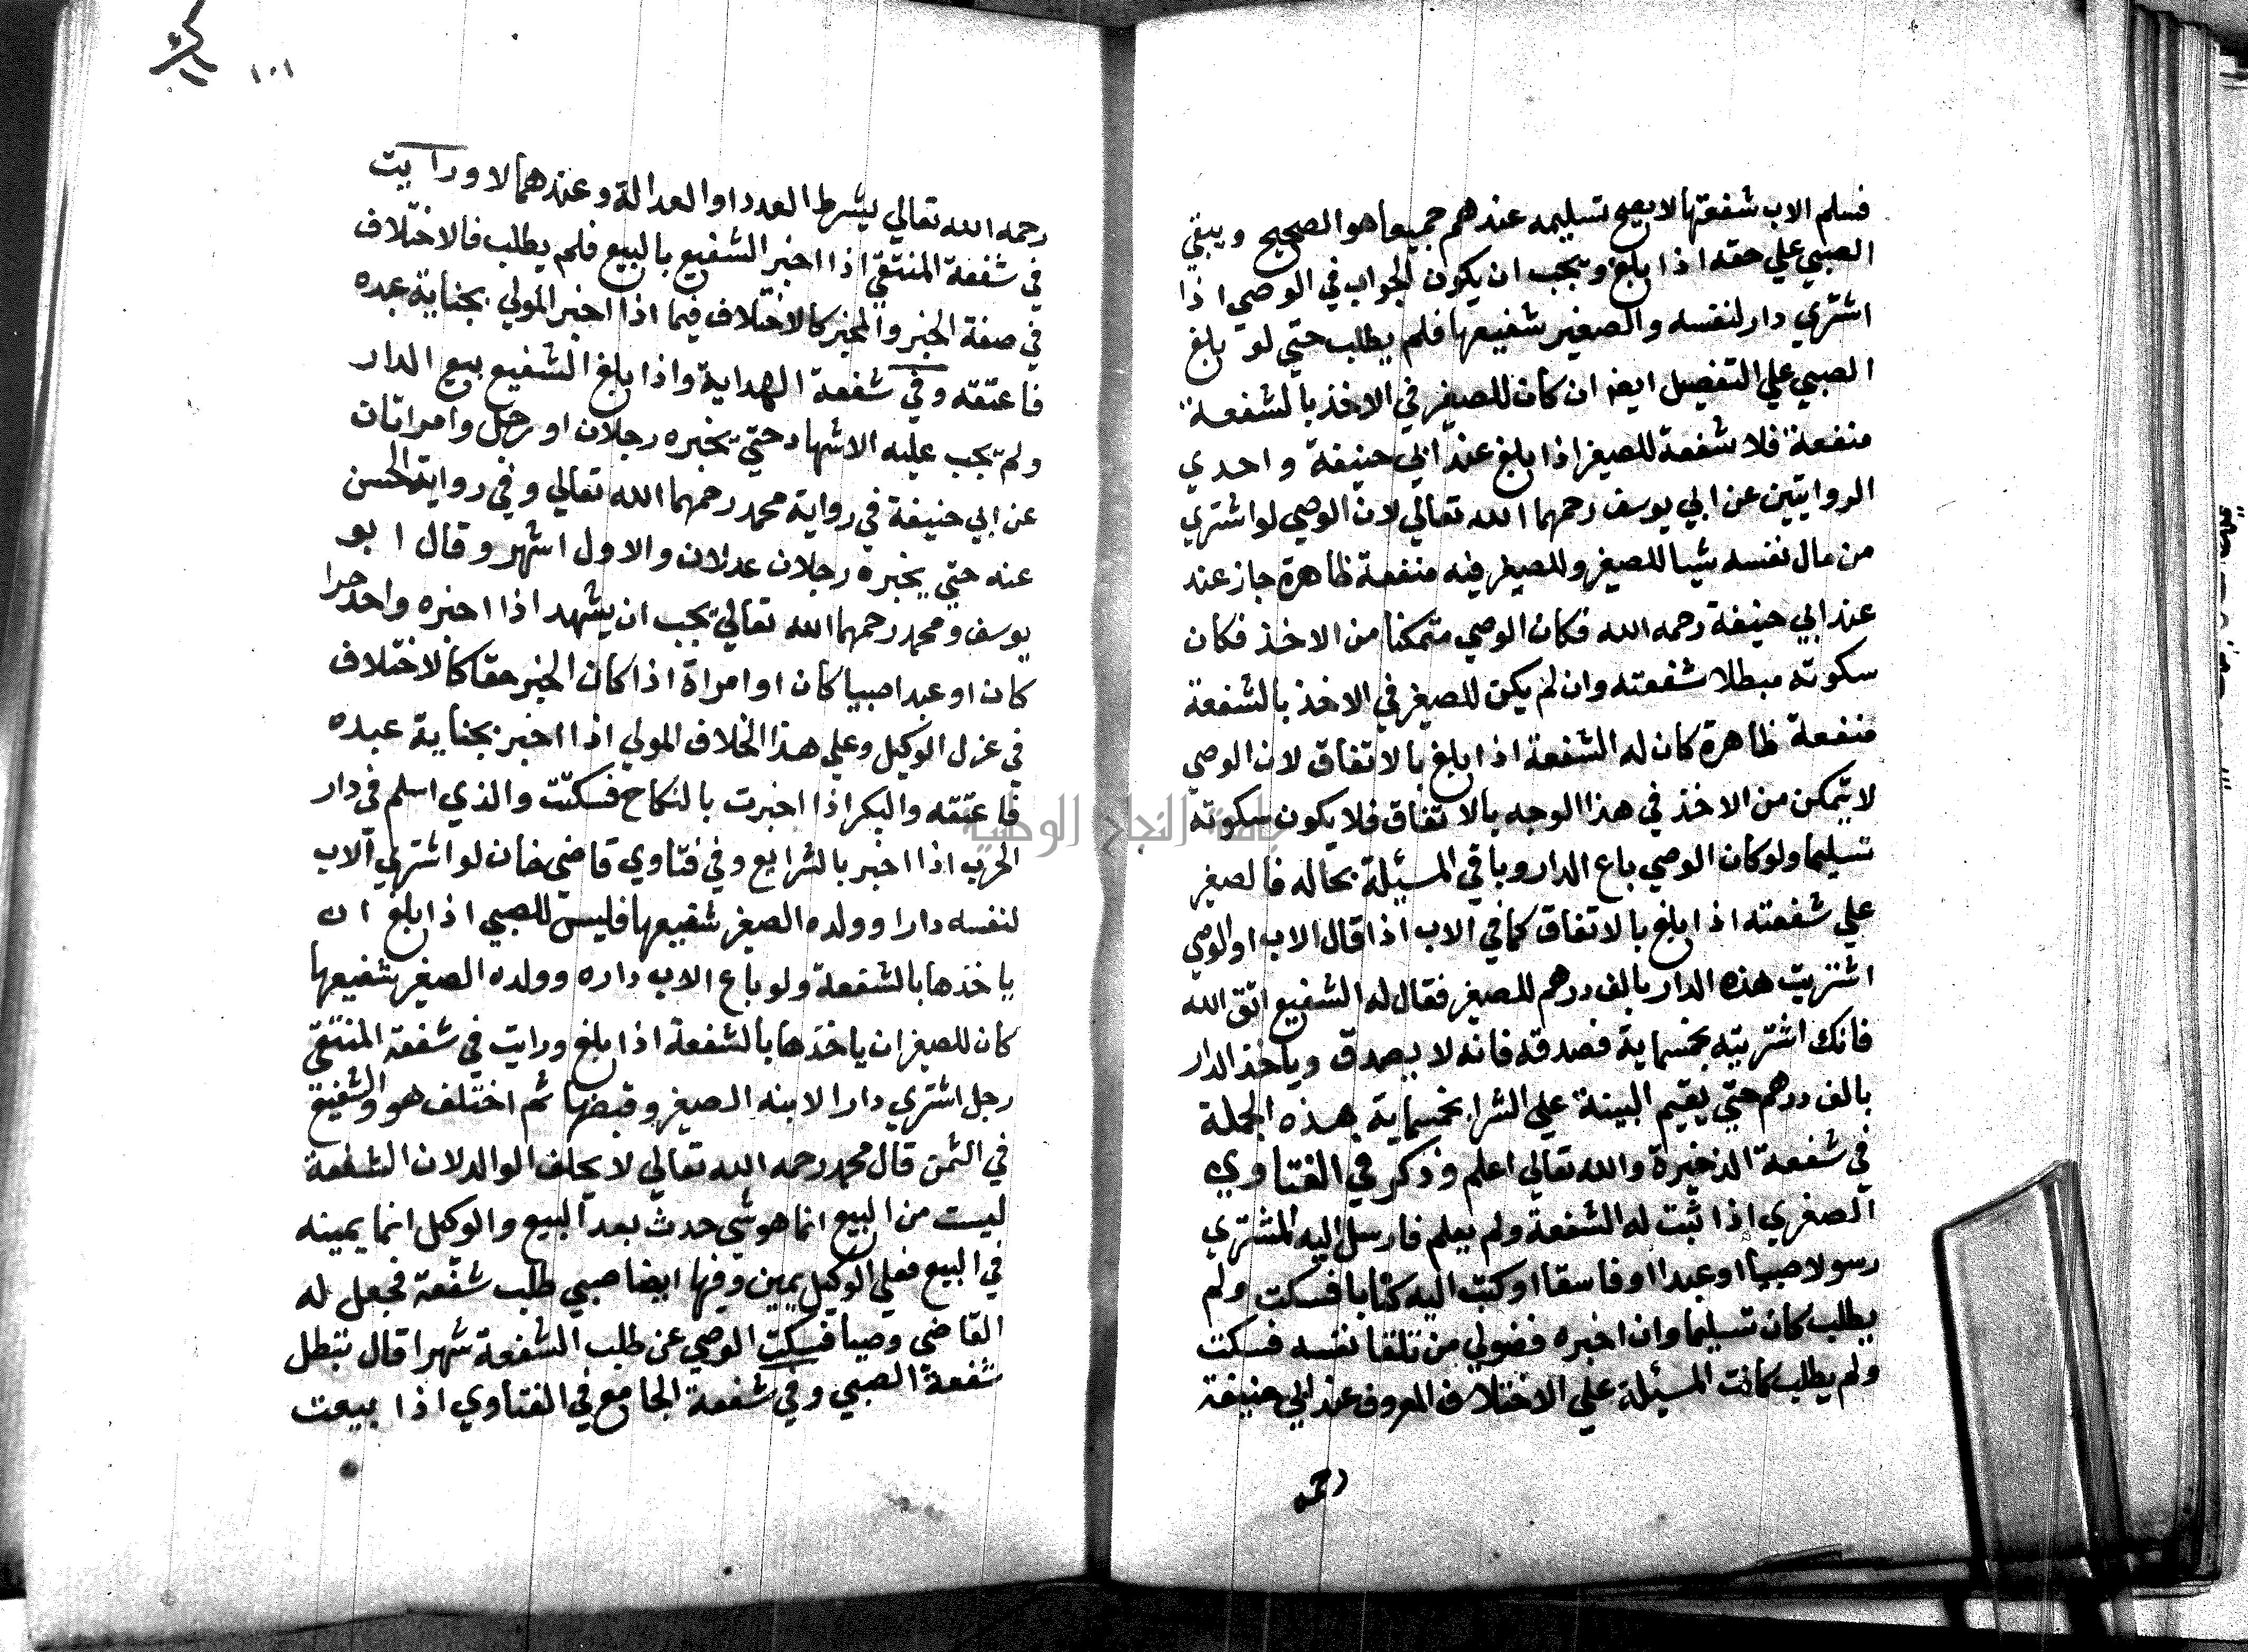 فسلم الاب شفعتها لا يصح تسليمه عندهم جميعا هو الصحيح ويبقي
الصبي علي حقه اذا بلغ ويجب ان يكون الجواب في الوصي اذا
اشتري دار لنفسه والصغير شفيعها فلم يطلب حتي لو بلغ
الصبي علي التفصيل ايضا ان كان للصغير في الاخذ بالشفعة
منفعة فلا شفعة للصغير اذا بلغ عند ابي حنيفة واحدي
الروايتين عن ابي يوسف رحمهما الله تعالي لان الوصي لو اشتري
من مال نفسه شيا للصغير وللصغير فيه منفعة ظاهرة جاز عند
عند ابي حنيفة رحمه الله فكان الوصي متمكنا من الاخذ فكان
سكوته مبطلا شفعته وان لم يكن للصغير في الاخذ بالشفعة
منفعة ظاهرة كان له الشفعة اذا بلغ بالاتفاق لان الوصي
لا يتمكن من الاخذ في هذا الوجه بالاتفاق فلا يكون سكوته
تسليما ولو كان الوصي باع الدار وباقي المسيلة بحاله فالصغير
علي شفعته اذا بلغ بالاتفاق كما في الاب اذا قال الاب او الوصي
اشتريت هذه الدار بالف درهم للصغير فقال له الشفيع اتق الله
فانك اشتريته بخمساية فصدقه فانه لا يصدق وياخذ الدار
بالف درهم حتي يقيم البينة علي الشرا بخمساية هذه الجملة
في شفعة الذخيرة والله تعالي اعلم وذكر في الفتاوي
الصغري اذا ثبت له الشفعة ولم يعلم فارسل اليه المشتري
رسولا صبيا او عبدا او فاسقا او كتب اليه كتابا فسكت ولم
يطلب كان تسليما وان اخبره فضولي من تلقا نفسه فسكت
ولم يطلب كانت المسيلة علي الاختلاف المعروف عند ابي حنيفة
رحمه
١٠١
رحمه الله تعالي يشرط العدد او العدالة وعندهما لا ورايت
في شفعة المنتقي اذا اخبر الشفيع بالبيع فلم يطلب فالاختلاف
في صفة الخبر والمخبر كالاختلاف فيما اذا اخبر المولي بجناية عبده
فاعتقه وفي شفعة الهداية واذا بلغ الشفيع بيع الدار
ولم يجب عليه الاشهاد حتي يخبره رجلان او رجل وامراتان
عن ابي حنيفة في رواية محمد رحمهما الله تعالي وفي رواية الحسن
عنه حتي يخبره رجلان عدلان والاول اشهر وقال ابو
يوسف ومحمد رحمهما الله تعالي يجب ان يشهد اذا اخبره واحد حرا
كان او عبدا صبيا كان او امراة اذا كان الخبر حقا كالاختلاف
في عزل الوكيل وعلي هذا الخلاف المولي اذا اخبر بجناية عبده
فاعتقه والبكر اذا اخبرت بالنكاح فسكتت والذي اسلم في دار
الحرب اذا اخبر بالشرايع وفي فتاوي قاضي خان لو اشتري الاب
لنفسه دارا وولده الصغير شفيعها فليس للصبي اذا بلغ ان
ياخذها بالشفعة ولو باع الاب داره وولده الصغير شفيعها
كان للصغير ان ياخذها بالشفعة اذا بلغ ورايت في شفعة المنتقي
رجل اشتري دارا لابنه الصغير وقبضها ثم اختلف هو والشفيع
في الثمن قال محمد رحمه الله تعالي لا يحلف الوالد لان الشفعة
ليست من البيع انما هو شي حدث بعد البيع والوكيل انما يمينه
في البيع فعلي الوكيل يمين وفيها ايضا صبي طلب شفعة فجعل له
القاضي وصيا فسكت الوصي عن طلب الشفعة شهرا قال تبطل
شفعة الصبي وفي شفعة الجامع في الفتاوي اذا بيعت
جامعة النجاح الوطنية